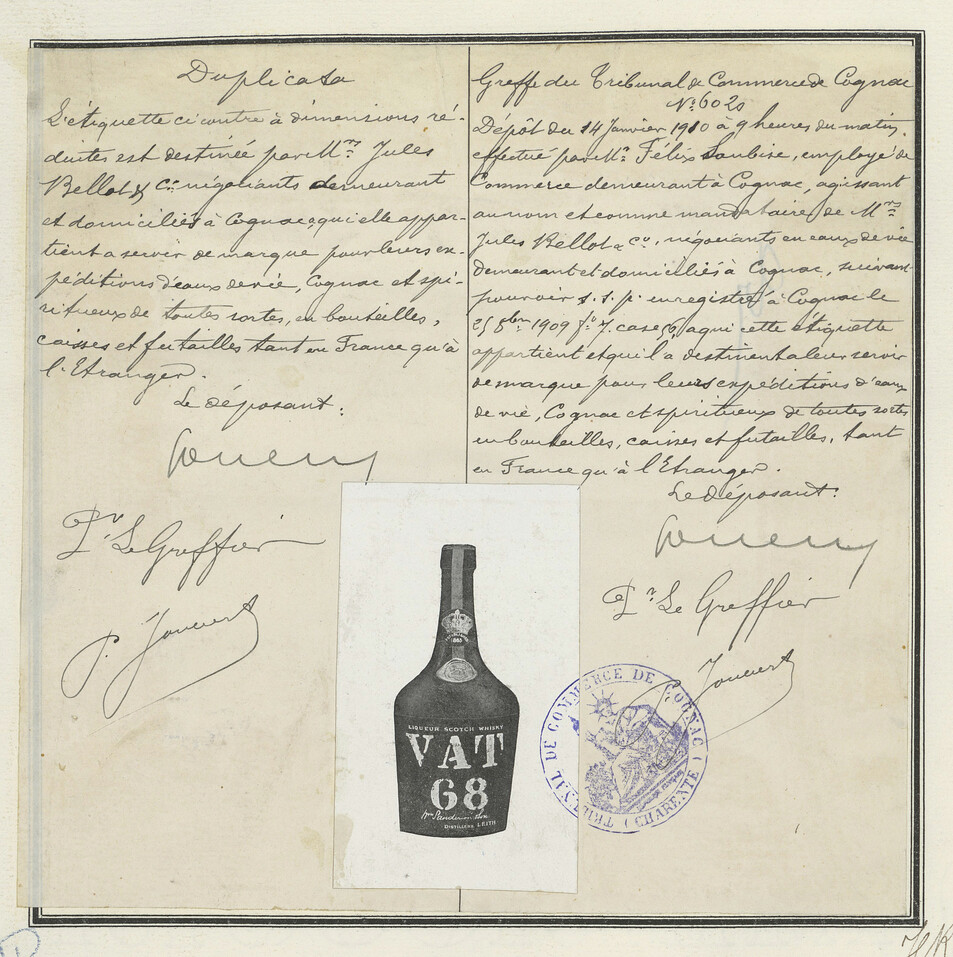 Duplicata
L'étiquette ci contre à dimensions ré-
duites est destinée par Mrs Jules
Bellot & Cie négociants demeurant
et domiciliés à Cognac, a qui elle appar-
tient a servir de marque pour leurs ex-
péditions d'eaux de vie, Cognac et spi-
ritueux de toutes sortes, en bouteilles,
caisses et futailles tant en France qu'à
l'Etranger.
Le déposant:
Pr Le Greffier
P. Jouvert
Greffe du Tribunal de Commerce de Cognac
No 6020
Dépôt du 14 Janvier 1910 à 9 heures du matin,
effectué par Mr Félix Soubise, employé de
Commerce demeurant à Cognac, agissant
au nom et comme mandataire de Mrs
Jules Bellot & Co, négociants en eaux de vie
demeurant et domiciliés à Cognac, suivant
pouvoir s. s. p. enregistré à Cognac le
25 8bre 1909 fo 7, case 56, a qui cette étiquette
appartient et qui l'a destinent a leur servir
de marque pour leurs expéditions d'eaux
de vie, Cognac et spiritueux de toutes sortes
en bouteilles, caisses et futailles, tant
en France qu'à l'Etranger.
Le déposant:
Pr Le Greffier
Jouvert
TRIBUNAL DE COMMERCE DE COGNAC
(CHARENTE)
LIQUEUR SCOTCH WHISKY
VAT
68
Wm Sanderson & Son
DISTILLERS LEITH